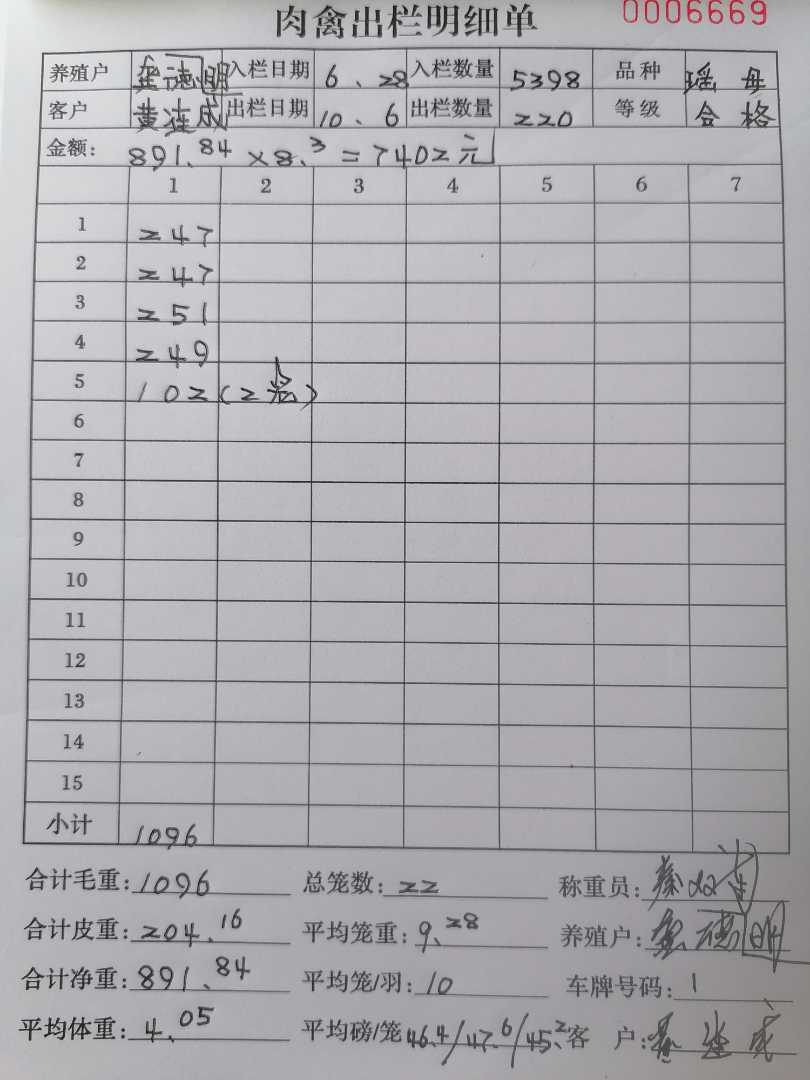 肉禽出栏明细单 0006669
养殖户 德明 入栏日期 6、28 入栏数量 5398 品种 瑶母
客户 黄连成 出栏日期 10、6 出栏数量 220 等级 合格
金额: 891.84 ×8.3 =7402元
1 2 3 4 5 6 7
1 247
2 247
3 251
4 249
5 102(2笼)
6
7
8
9
10
11
12
13
14
15
小计 1096
合计毛重: 1096 总笼数: 22 称重员:
合计皮重: 204.16 平均笼重: 9.28 养殖户: 德明
合计净重: 891.84 平均笼/羽: 10 车牌号码: 1
平均体重: 4.05 平均磅/笼 46.4/47.6/45.2 客户: 黄连成